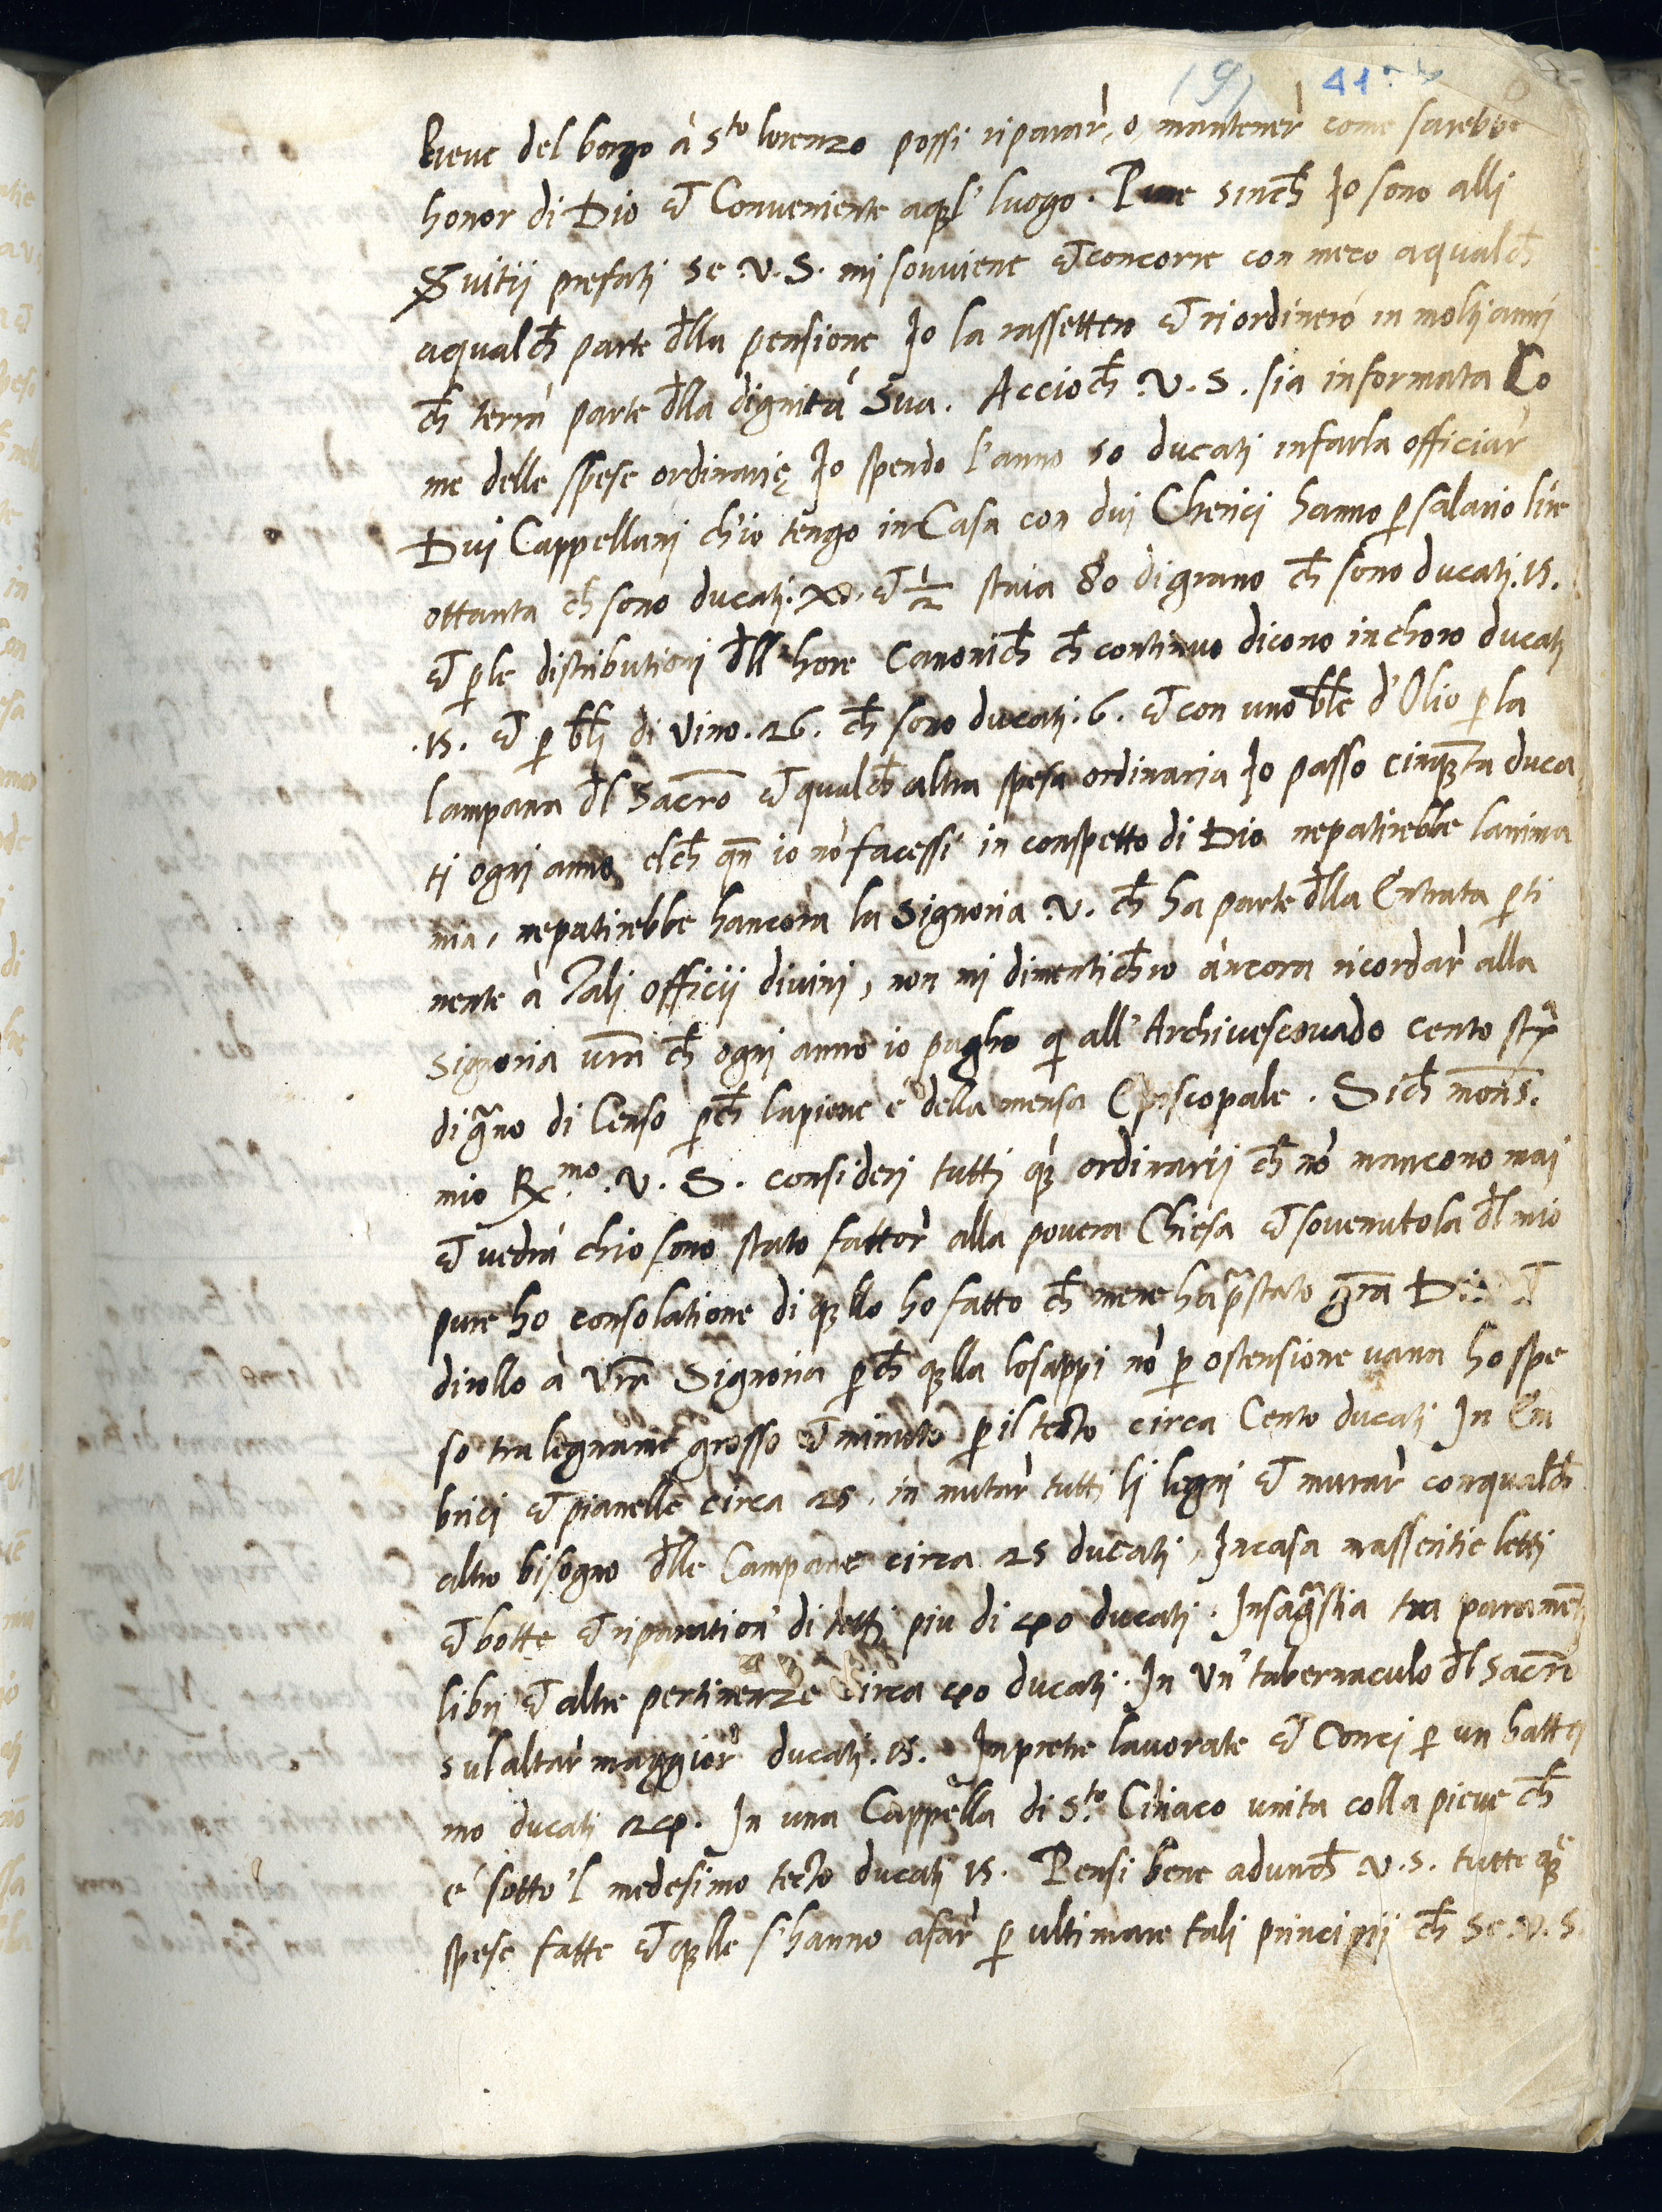 (9) 41
Pieve del borgo à S.to lorenzo possi riparar', o, mantener' come sarebbe
honor di Dio et Conveniente a quel' luogo. Pure sinch̄ Io sono alli
Svitij prefati se V. S. mi souviene et concorre con meco aqualch̄
aqualch̄ parte dlla pensione Io la rassettero et riordinerò in molti anni
ch̄ terrà parte dlla dignità Sua. Accioch̄ V. S. sia informata Co
me delle spese ordinarie Io spendo l'anno 50 ducati in farla officiar
Dui Cappellani ch'io tengo in Casa con dui Cherici hanno p salario lire
ottanta ch̄ sono ducati. XI. et 1/2 staia 80 di grano ch̄ sono ducati. 15.
et p le distributioni dll' hore Canonich̄ ch̄ continuo dicono in choro ducati
.15. et p bḹi di vino. 26. ch̄ sono ducati. 6. et con uno bḹe d'Olio p la
lampana dl Sacro et qualch̄ altra spesa ordinaria Io passo cinqta duca
ti ogni anno, elch̄ qn̄ io nō facessi in conspetto di Dio nepatirebbe lanima
mia, nepatirebbe hancora la Signoria V. ch̄ ha parte dlla Entrata p ti
nente à Tali officij divini, non mi dimentich̄ro ancora ricordar' alla
Signoria vra ch̄ ogni anno io pagho qi all' Archivescovado cento str̄
di grano di Censo pch̄ lapieve e della mensa Episcopale. Sich̄ mons.
mio R.mo V. S. consideri tutti qi ordinarij ch̄ nō mancono mai
et vedrà chio sono stato fattor' alla povera Chiesa et sovenutola dl mio
pure ho consolatione di qllo ho fatto ch̄ mene ha pstato gra Dio et
dirollo à Vra Signoria pch̄ qlla losappi nō p ostensione vana ho spe
so tra legname grosso et minuto p il tecto circa Cento ducati In Em
brici et pianelle circa 25. in mutar' tutti li legni et murar' con qualch̄
altro bisogno dlle Campane circa 25 ducati, In casa masseritie letti
et botte et riparation' di tetti piu di 40 ducati. In sagrestia tra parameti
libri et altre pertinenze circa 40 ducati. In un' tabernaculo dl Sacro
sul altar' maggior' ducati. 15. In pietre lavorate et Conci p un batte
mo ducati 24. In una Cappella di S.to Ciriaco unita colla pieve ch̄
e' sotto 'l medesimo tecto ducati 15. Pensi bene adunch̄ V. S. tutte qe
spese fatte et qlle s'hanno afar' p ultimare tali principij ch̄ se V. S